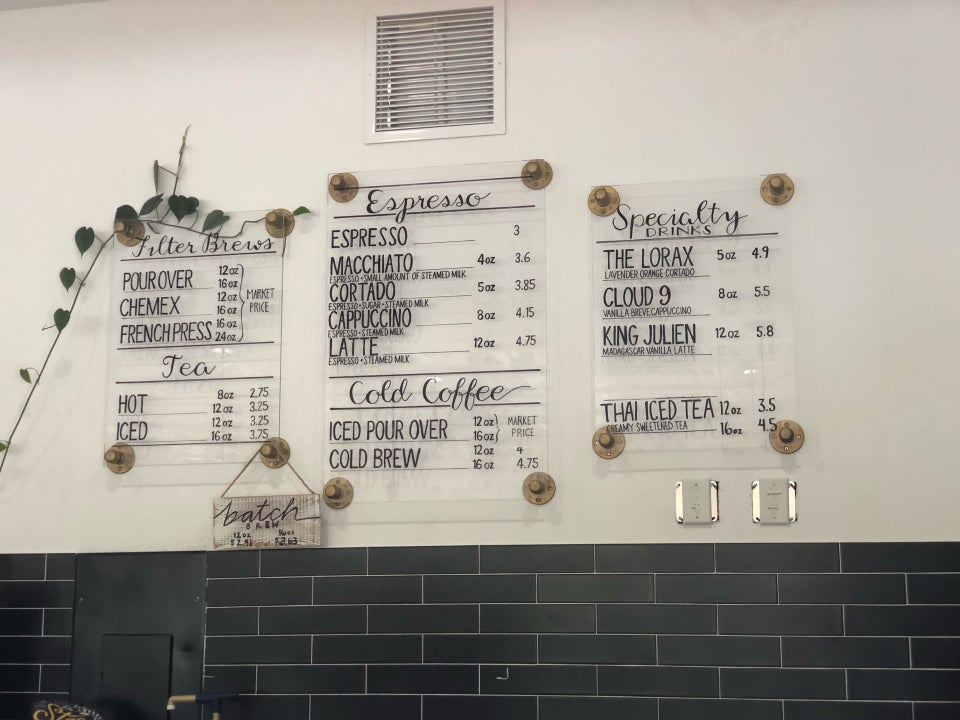 Filter Brews
POUROVER 12oz
16oz
CHEMEX 12oz
16oz
FRENCH PRESS 16oz
24oz
MARKET
PRICE
Tea
HOT 8oz 2.75
12oz 3.25
ICED 12oz 3.25
16oz 3.75
batch
BREW
12oz 16oz
Espresso
ESPRESSO 3
MACCHIATO 4oz 3.6
ESPRESSO+SMALL AMOUNT OF STEAMED MILK
CORTADO 5oz 3.85
ESPRESSO+SUGAR+STEAMED MILK
CAPPUCCINO 8oz 4.15
ESPRESSO+STEAMED MILK
LATTE 12oz 4.75
ESPRESSO+STEAMED MILK
Cold Coffee
ICED POUR OVER 12oz
16oz
MARKET
PRICE
COLD BREW 12oz 4
16oz 4.75
Specialty
DRINKS
THE LORAX 5oz 4.9
LAVENDER ORANGE CORTADO
CLOUD 9 8oz 5.5
VANILLA BREVE CAPPUCCINO
KING JULIEN 12oz 5.8
MADAGASCAR VANILLA LATTE
THAI ICED TEA 12oz 3.5
CREAMY SWEETENED TEA 16oz 4.5